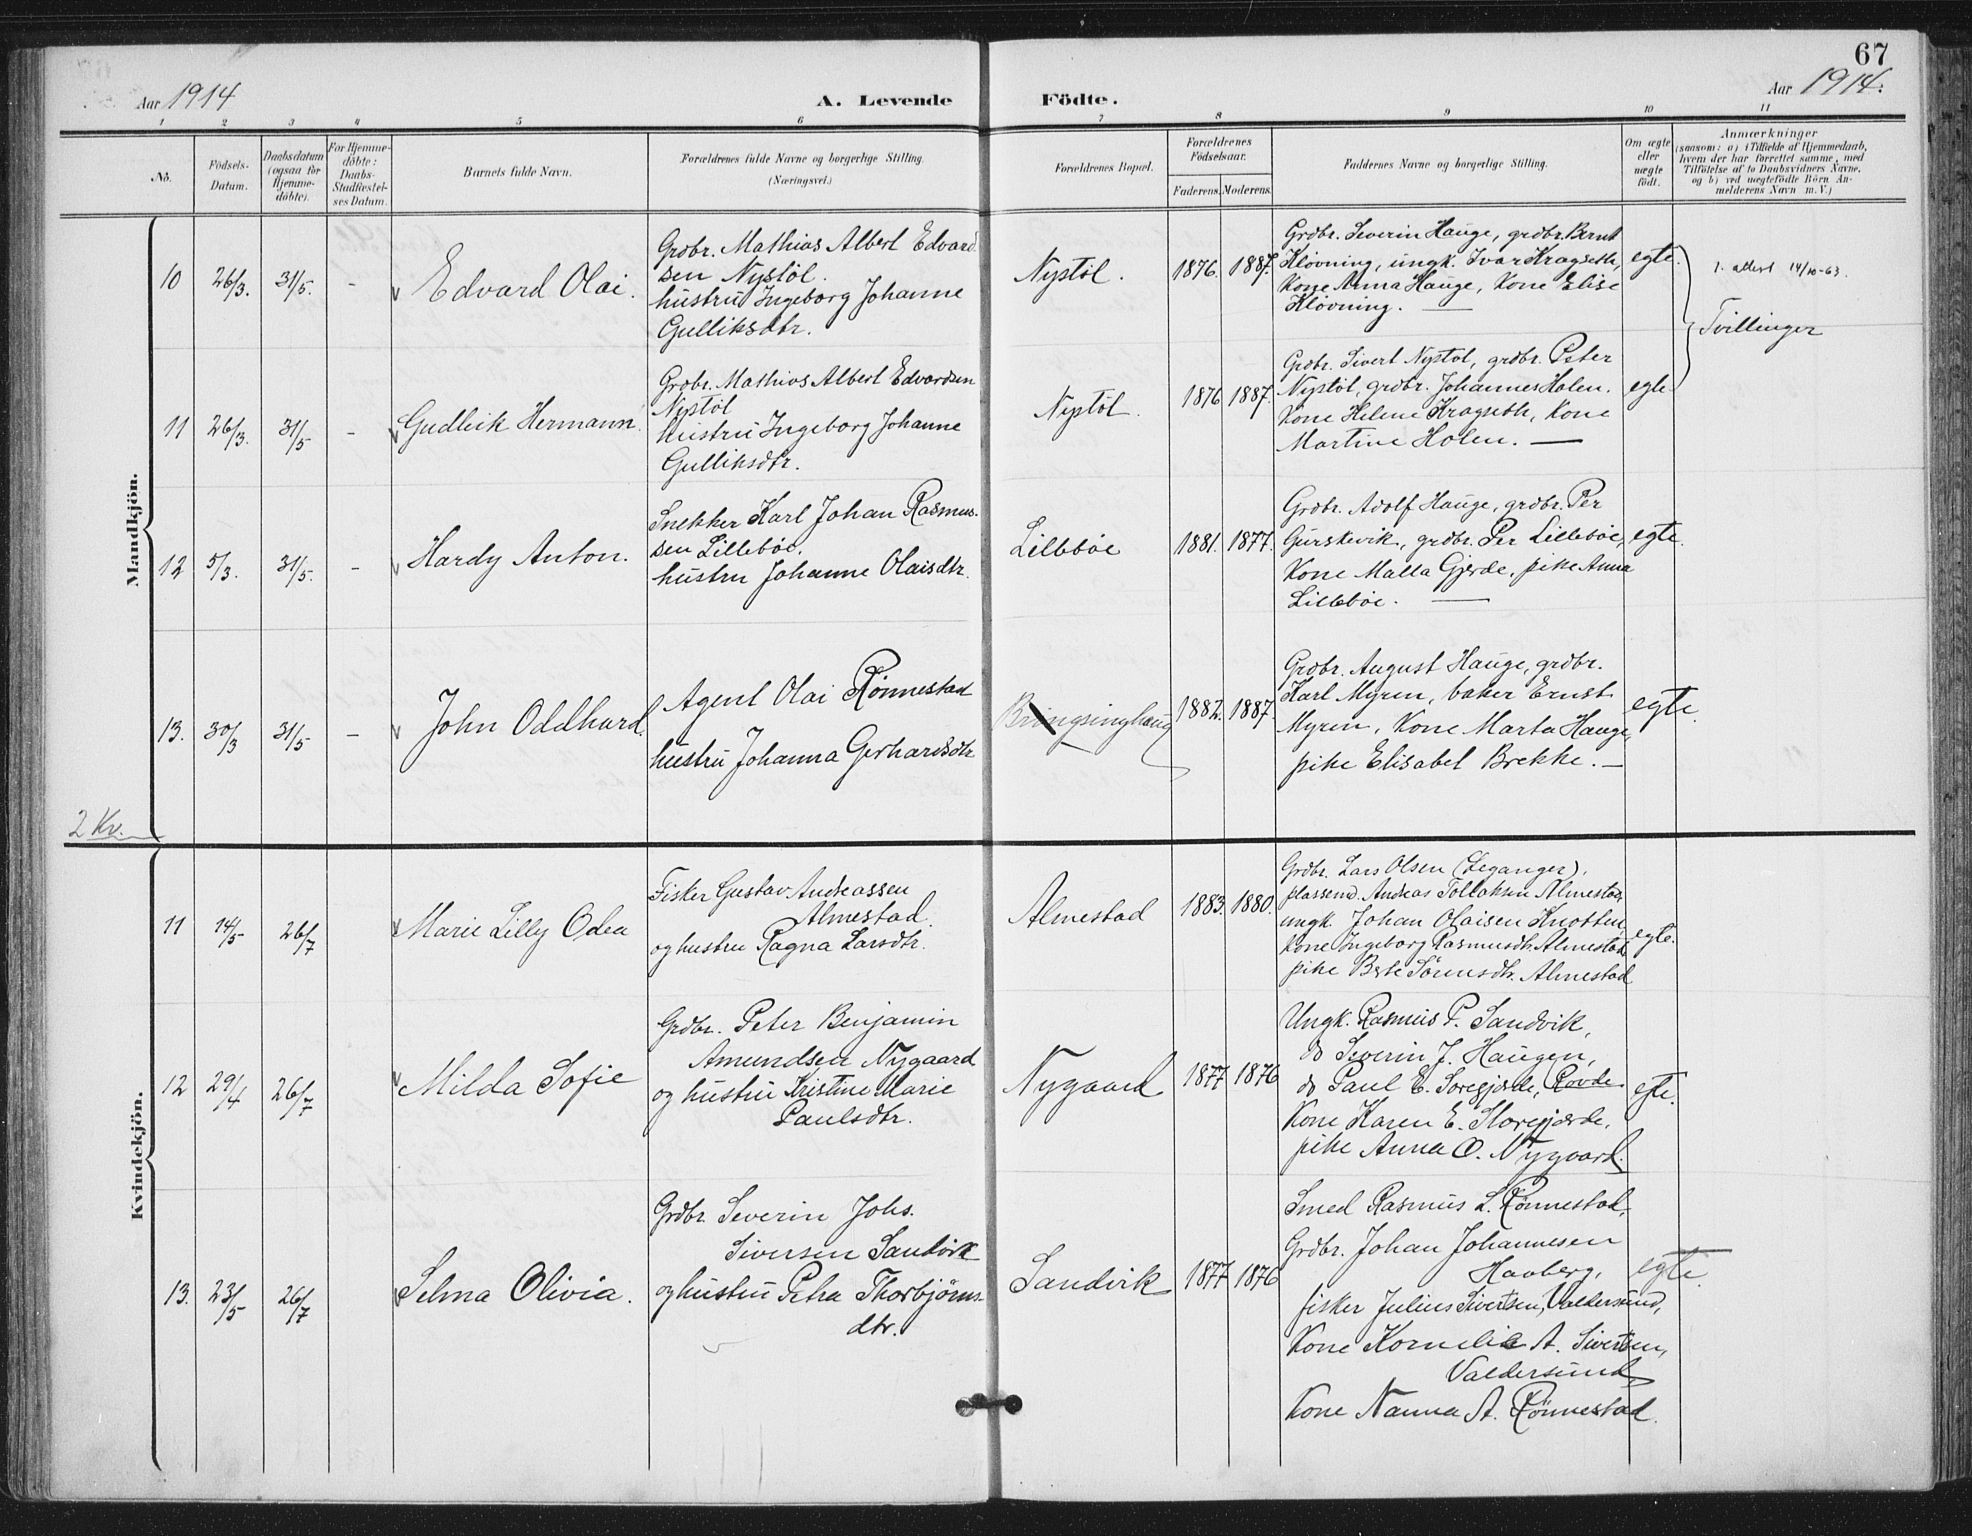 67
Aar 1914
A. Levende
Födte.
Aar 1914.
1 2 3 4 5 6 7 8 9 10 11
No.
Födsels-
Datum.
Daabsdatum
(ogsaa for
Hjemme-
döbte).
For Hjemme-
döbte:
Daabs-
Stadfæstel-
ses Datum.
Barnets fulde Navn.
Forældrenes fulde Navne og borgerlige Stilling.
(Næringsvei.)
Forældrenes Bopæl.
Forældrenes
Födselsaar.
Faderens. Moderens.
Faddernes Navne og borgerlige Stilling.
Om ægte
eller
uægte
födt.
Anmærkninger
(saasom: a) i Tilfælde af Hjemmedaab,
hvem der har forrettet samme, med
Tilföielse af to Daabsvidners Navne,
og b) ved uægtefödte Börn An-
melderens Navn m. V.)
Mandkjön.
10 26/3. 31/5. - v Edvard Olai.
Grdbr. Mathias Albert Edvard
sen Nystöl.
hustru Ingeborg Johanne
Gulliksdtr.
Nystöl. 1876. 1887.
Grdbr. Severin Hauge, grdbr. Bernt
Kløvning, ungk. Ivar Kragseth,
Kone Anna Hauge, Kone Elise
Kløvning. —
egte.
1. attest 14/10-63.
Tvillinger
11 26/3. 31/5 - v Gudleik Hermann
Grdbr. Mathias Albert Edvardsen
Nystöl
hustru Ingeborg Johanne
Gulliksdtr.
Nystöl. 1876 1887.
Grdbr. Sivert Nystöl, grdbr. Peter
Nystöl, grdbr. Johannes Holen.
Kone Helene Kragseth, Kone
Martine Holen. —
egte.
12 5/3. 31/5. - v Hardy Anton.
Snekker Karl Johan Rasmus-
sen Lillebøe.
hustru Johanne Olaisdtr.
Lillebøe 1881. 1877.
Grdbr. Adolf Hauge, grdbr. Per
Gurskevik, grdbr. Per Lillebøe,
Kone Malla Gjerde, pike Anna
Lillebøe. —
egte.
13. 30/3 31/5 - v John Oddhard.
Agent Olai Rönnestad
hustru Johanna Gerhardsdtr
Bringsinghaug 1882. 1887.
Grdbr. August Hauge, grdbr.
Karl Myren, baker Ernst
Myren, Kone Marta Hauge,
pike Elisabet Brekke. —
egte.
2 Kv.
Kvindekjön.
11 14/5 26/7 v Marie Lilly Odea
Fisker Gustav Andreassen
Almestad.
og hustru Ragna Larsdtr.
Almestad 1883. 1880.
Grdbr. Lars Olsen (Leganger),
plassmd. Andreas Tollaksen Almestad,
ungk. Johan Olaisen Knotten
Kone Ingeborg Rasmusdtr. Almestad
pike Berte Sörensdtr. Almestad
egte.
12 29/4 26/7 v Milda Sofie
Grdbr. Peter Benjamin
Amundsen Nygaard
og hustru Kristine Marie
Paulsdtr.
Nygaard 1877 1876
Ungk. Rasmus P. Sandvik,
do Severin J. Haugen,
do Paul E. Soregjerde, Rovde
Kone Karen E. Storegjærde,
pike Anna O. Nygaard.
egte.
13. 23/5 26/7 v Selma Olivia.
Grdbr. Severin Johs.
Siversen Sandvik
og hustru Petra Thorbjörns-
dtr.
Sandvik 1877 1876
Smed Rasmus L. Rönnestad,
Grdbr. Johan Johannesen
Havberg,
fisker Julius Sivertsen, Valdersund,
Kone Kornelie A. Sivertsen,
Valdersund,
Kone Nanna A. Rönnestad.
egte.